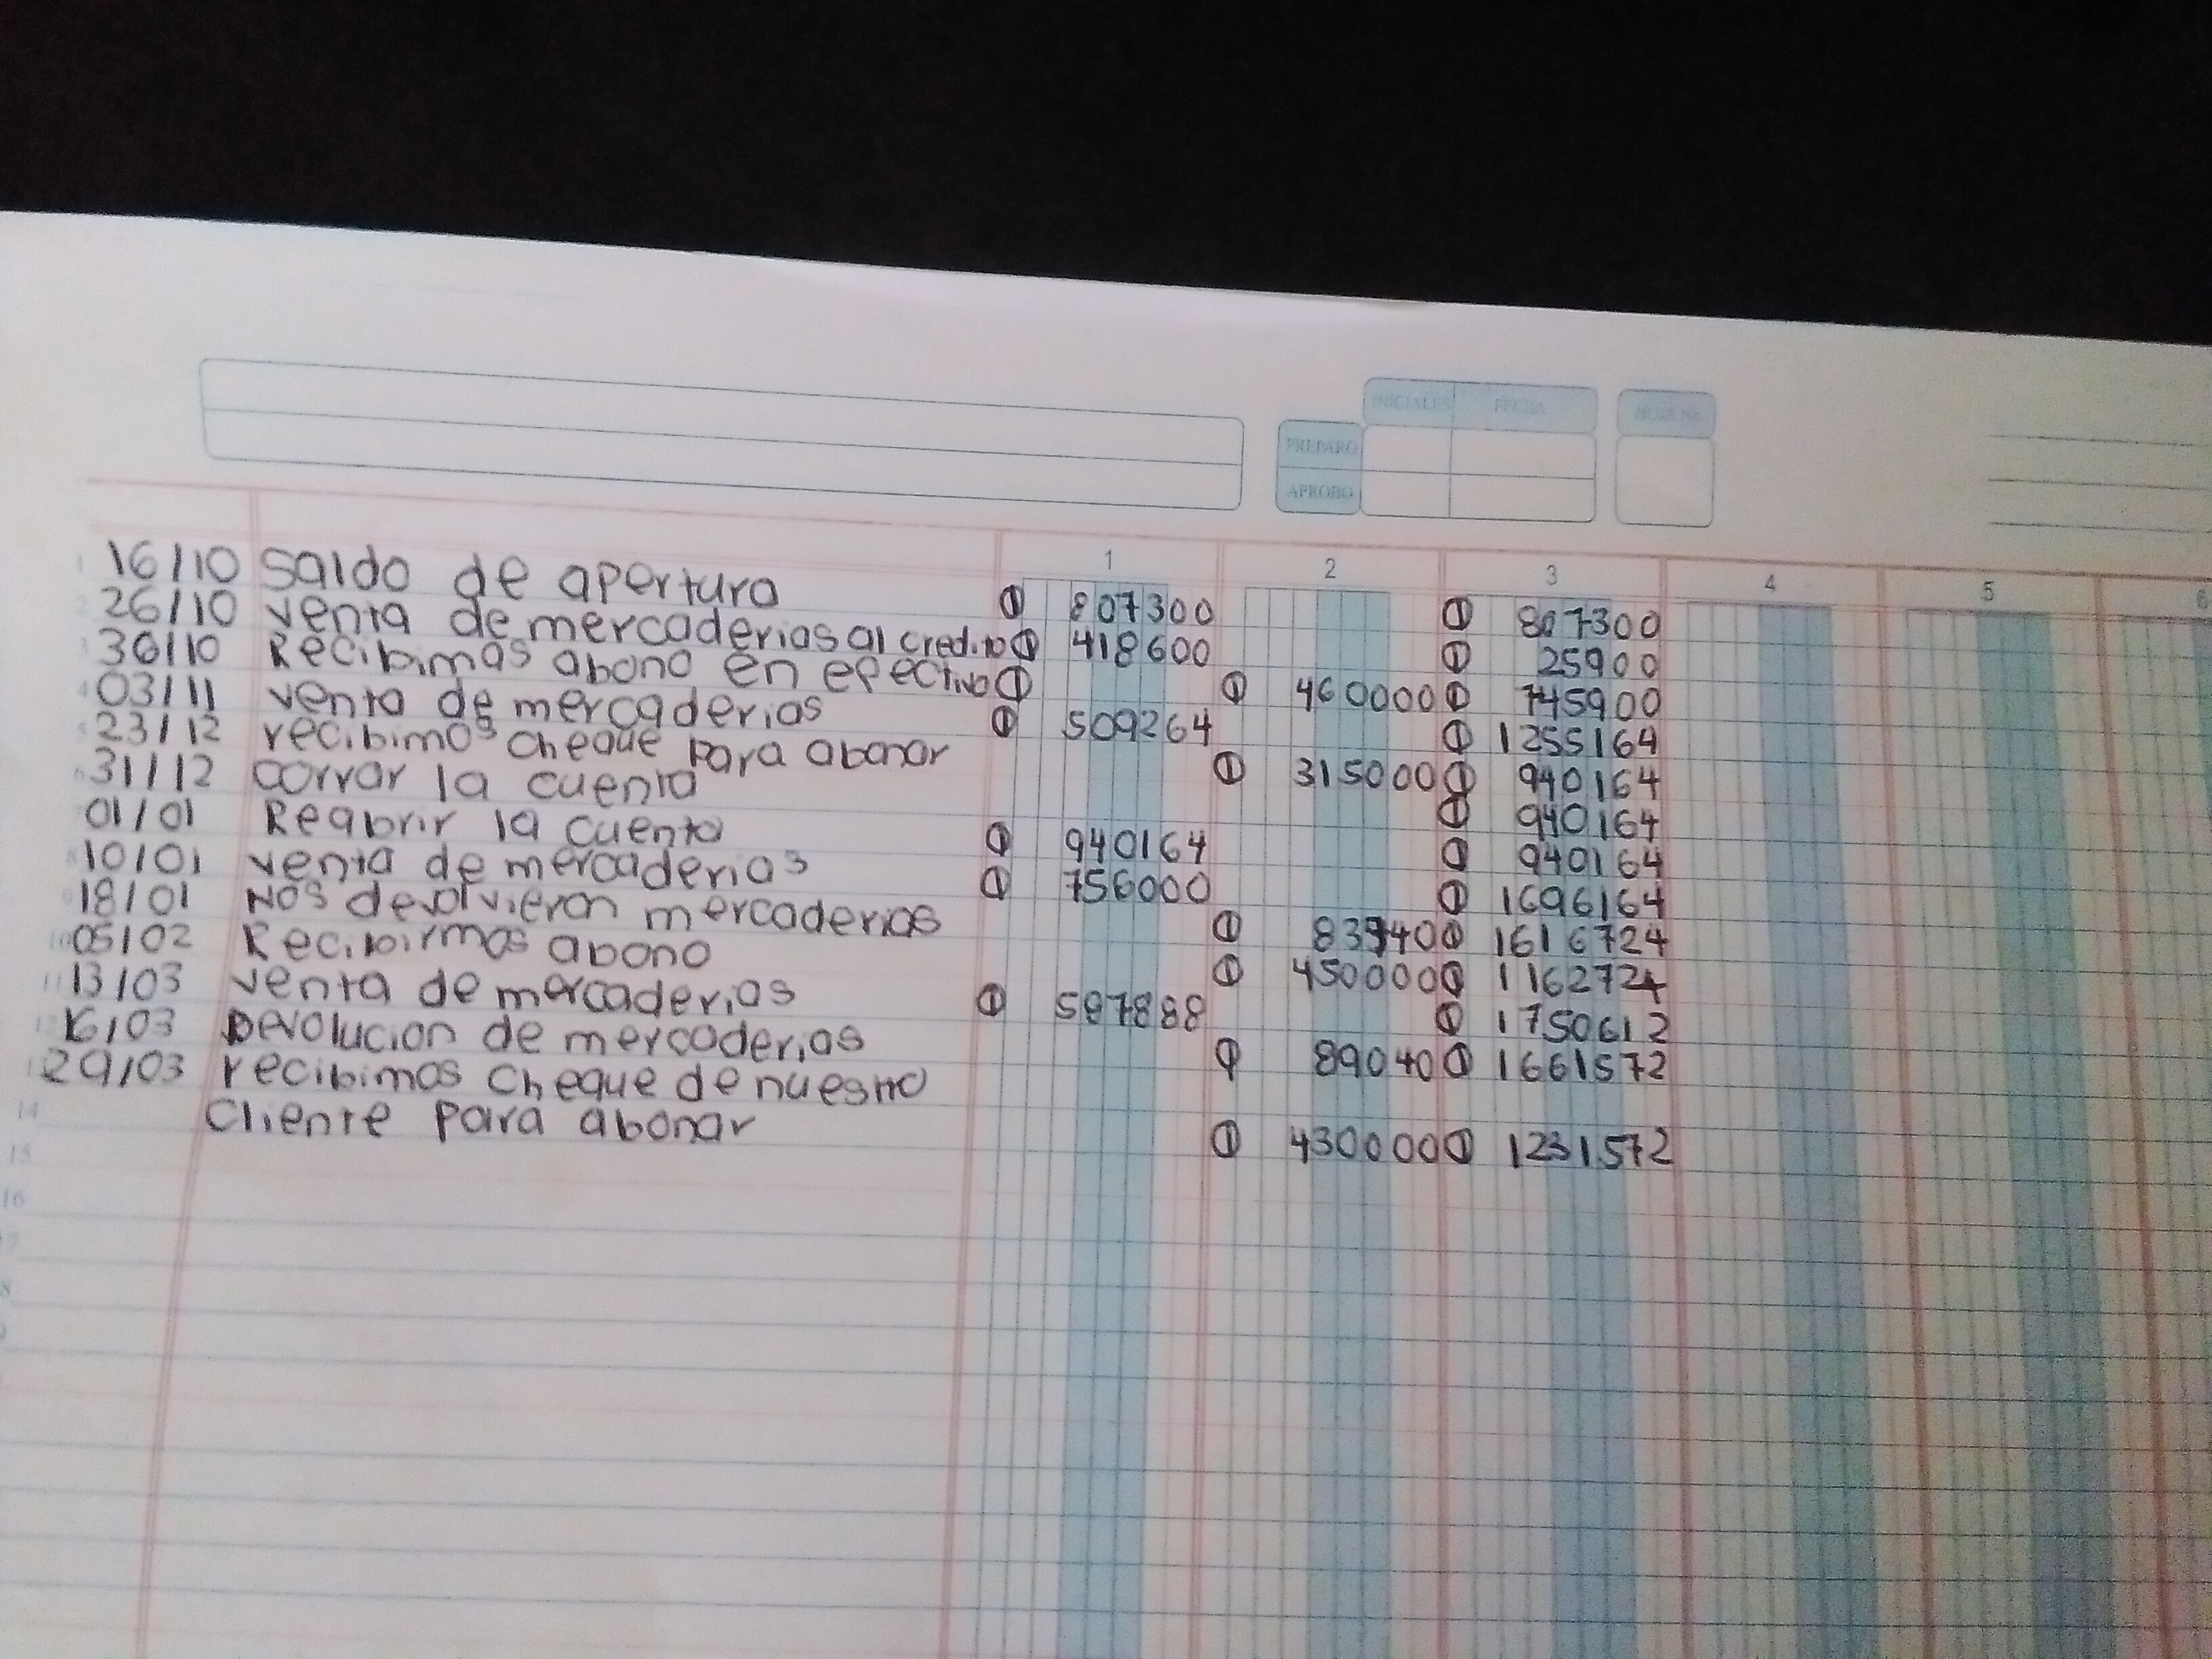 INICIALES FECHA HOJA No.
PREPARO
APROBO
1 2 3 4 5 6
1 16/10 Saldo de apertura ① 807300 ① 807300
2 26/10 venta de mercaderias al credito ① 418600 ① 25900
3 30/10 Recibimas abono en efectivo ① ① 460000 ① 745900
4 03/11 venta de mercaderias ① 509264 ① 1255164
5 23/12 recibimos cheque para abonar ① 315000 ① 940164
6 31/12 corrar la cuenta ① 940164
01/01 Reabrir la cuenta ① 940164 ① 940164
8 10/01 venta de mercaderias ① 756000 ① 1696164
9 18/01 Nos devolvieron mercaderias ① ① 1616724
10 05/02 Recibirmos abono ① 450000 ① 1162724
11 13/03 venta de mercaderias ① 587888 ① 1750612
12 16/03 Devolucion de mercaderias ① 89040 ① 1661572
1 29/03 recibimos cheque de nuestro
14 cliente para abonar ① 430000 ① 1231572
15
16